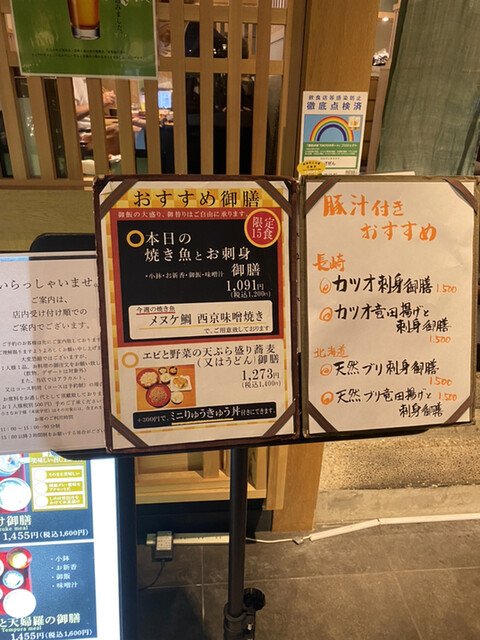 飲食店等感染防止
徹底点検済
おすすめ御膳
御飯の大盛り、御替りはご自由に承ります。
限定
15食
本日の
焼き魚とお刺身
御膳
・小鉢・お新香・御飯・味噌汁
1,091円
(税込1,200円)
今週の焼き魚
メヌケ鯛 西京味噌焼き
で、ご用意致しております
エビと野菜の天ぷら盛り蕎麦
(又はうどん)御膳
1,273円
(税込1,400円)
+300円で、ミニりゅうきゅう丼付きにできます。
豚汁付き
おすすめ
長崎
カツオ刺身御膳 1,500
カツオ竜田揚げと
刺身御膳 1,500
北海道
天然ブリ刺身御膳
1,500
天然ブリ竜田揚げと
刺身御膳 1,500
いらっしゃいませ。
ご案内は、
店内受け付け順での
ご案内でございます。
け御膳
1,455円(税込1,600円)
・小鉢
・お新香
・御飯
・味噌汁
と天婦羅の御膳
Tempura meal
1,455円(税込1,600円)